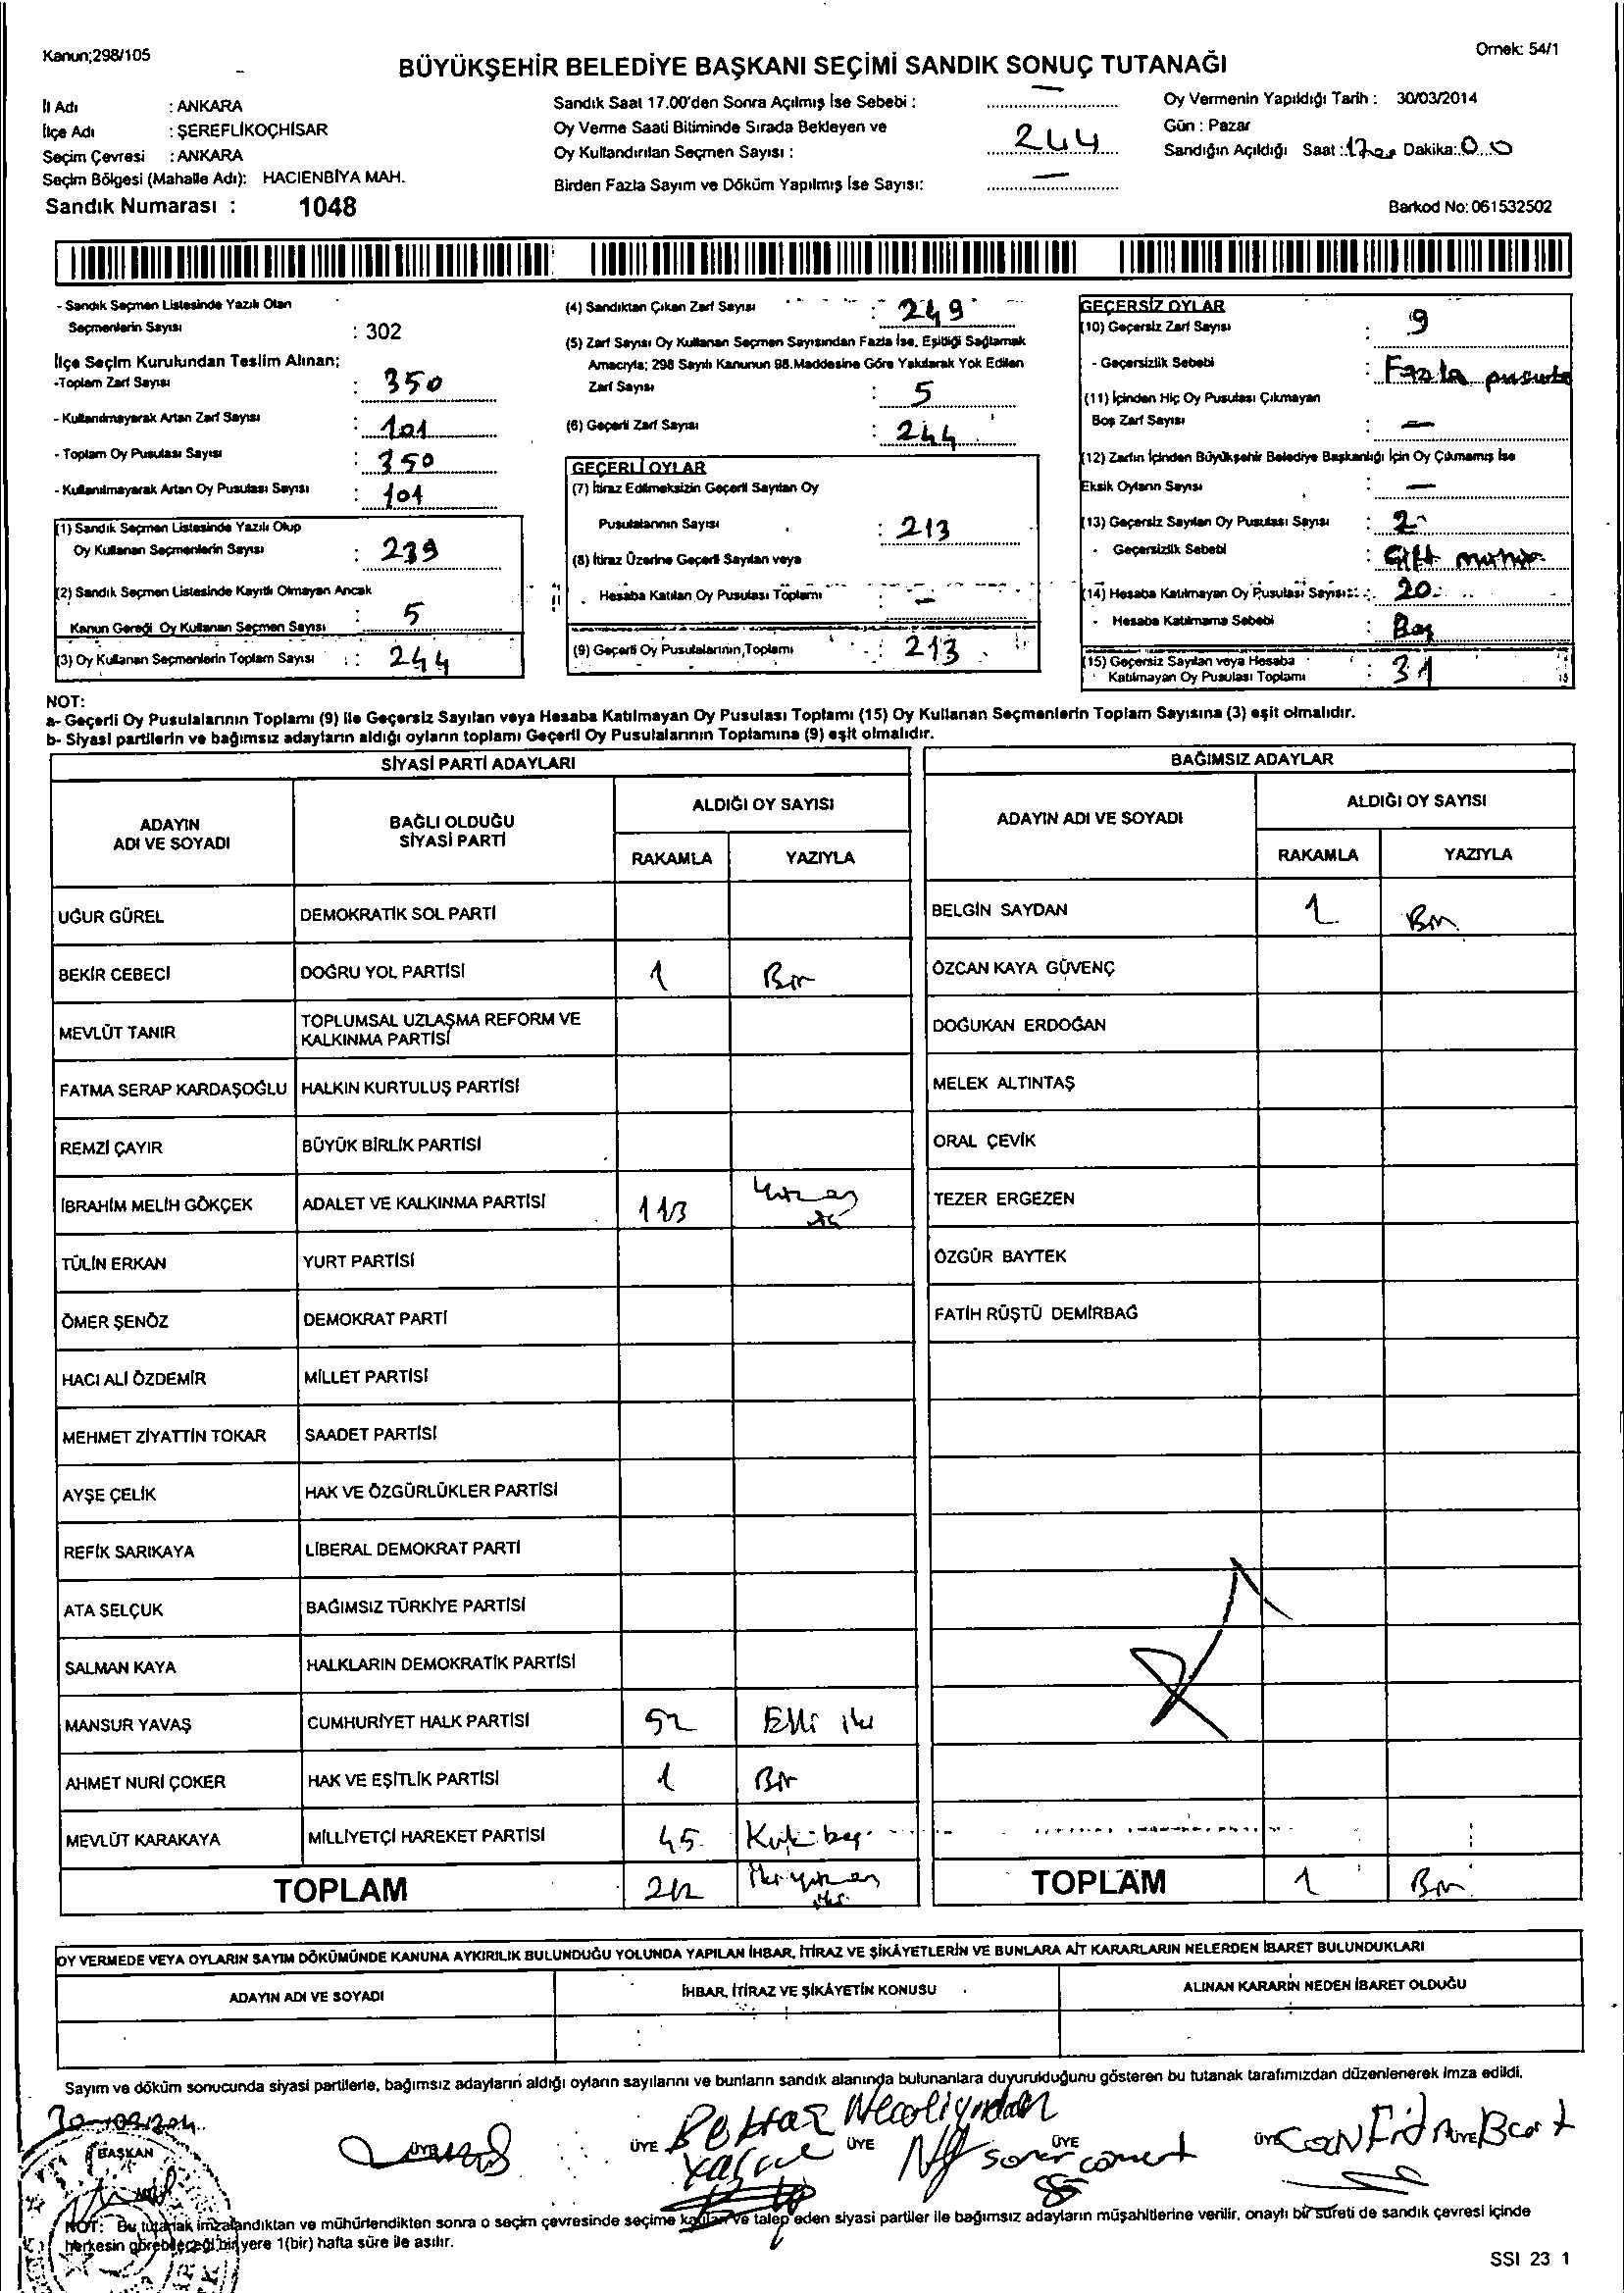 Kanun;298/105
Ornek: 54/1
BÜYÜKŞEHİR BELEDİYE BAŞKANI SEÇİMİ SANDIK SONUÇ TUTANAĞI
İl Adı : ANKARA
İlçe Adı : ŞEREFLİKOÇHİSAR
Seçim Çevresi : ANKARA
Seçim Bölgesi (Mahalle Adı): HACIENBİYA MAH.
Sandık Numarası : 1048
Sandık Saat 17.00'den Sonra Açılmış İse Sebebi : —
Oy Verme Saati Bitiminde Sırada Bekleyen ve
Oy Kullandırılan Seçmen Sayısı : 244
Birden Fazla Sayım ve Döküm Yapılmış İse Sayısı: —
Oy Vermenin Yapıldığı Tarih : 30/03/2014
Gün : Pazar
Sandığın Açıldığı Saat : Dakika: 00
Barkod No: 061532502
- Sandık Seçmen Listesinde Yazılı Olan
Seçmenlerin Sayısı : 302
İlçe Seçim Kurulundan Teslim Alınan;
-Toplam Zarf Sayısı : 350
- Kullanılmayarak Artan Zarf Sayısı : 101
- Toplam Oy Pusulası Sayısı : 350
- Kullanılmayarak Artan Oy Pusulası Sayısı : 101
(1) Sandık Seçmen Listesinde Yazılı Olup
Oy Kullanan Seçmenlerin Sayısı : 239
(2) Sandık Seçmen Listesinde Kayıtlı Olmayan Ancak
Kanun Gereği Oy Kullanan Seçmen Sayısı : 5
(3) Oy Kullanan Seçmenlerin Toplam Sayısı : 244
(4) Sandıktan Çıkan Zarf Sayısı : 249
(5) Zarf Sayısı Oy Kullanan Seçmen Sayısından Fazla İse, Eşitliği Sağlamak
Amacıyla; 298 Sayılı Kanunun 98.Maddesine Göre Yakılarak Yok Edilen
Zarf Sayısı : 5
(6) Geçerli Zarf Sayısı : 244
GEÇERLİ OYLAR
(7) İtiraz Edilmeksizin Geçerli Sayılan Oy
Pusulalarının Sayısı : 213
(8) İtiraz Üzerine Geçerli Sayılan veya
Hesaba Katılan Oy Pusulası Toplamı : —
(9) Geçerli Oy Pusulalarının Toplamı : 213
GEÇERSİZ OYLAR
(10) Geçersiz Zarf Sayısı : 9
- Geçersizlik Sebebi : Fazla pusula
(11) İçinden Hiç Oy Pusulası Çıkmayan
Boş Zarf Sayısı : —
(12) Zarfın İçinden Büyükşehir Belediye Başkanlığı İçin Oy Çıkmamış İse
Eksik Oyların Sayısı : —
(13) Geçersiz Sayılan Oy Pusulası Sayısı : 2
- Geçersizlik Sebebi : Çift mühür
(14) Hesaba Katılmayan Oy Pusulası Sayısı: 20
- Hesaba Katılmama Sebebi : Boş
(15) Geçersiz Sayılan veya Hesaba
Katılmayan Oy Pusulası Toplamı : 31
NOT:
a- Geçerli Oy Pusulalarının Toplamı (9) ile Geçersiz Sayılan veya Hesaba Katılmayan Oy Pusulası Toplamı (15) Oy Kullanan Seçmenlerin Toplam Sayısına (3) eşit olmalıdır.
b- Siyasi partilerin ve bağımsız adayların aldığı oyların toplamı Geçerli Oy Pusulalarının Toplamına (9) eşit olmalıdır.
SİYASİ PARTİ ADAYLARI
ADAYIN ADI VE SOYADI
BAĞLI OLDUĞU SİYASİ PARTİ
ALDIĞI OY SAYISI
RAKAMLA YAZIYLA
UĞUR GÜREL DEMOKRATİK SOL PARTİ
BEKİR CEBECİ DOĞRU YOL PARTİSİ 1 Bir
MEVLÜT TANIR TOPLUMSAL UZLAŞMA REFORM VE KALKINMA PARTİSİ
FATMA SERAP KARDAŞOĞLU HALKIN KURTULUŞ PARTİSİ
REMZİ ÇAYIR BÜYÜK BİRLİK PARTİSİ
İBRAHİM MELİH GÖKÇEK ADALET VE KALKINMA PARTİSİ 113
TÜLİN ERKAN YURT PARTİSİ
ÖMER ŞENÖZ DEMOKRAT PARTİ
HACI ALİ ÖZDEMİR MİLLET PARTİSİ
MEHMET ZİYATTİN TOKAR SAADET PARTİSİ
AYŞE ÇELİK HAK VE ÖZGÜRLÜKLER PARTİSİ
REFİK SARIKAYA LİBERAL DEMOKRAT PARTİ
ATA SELÇUK BAĞIMSIZ TÜRKİYE PARTİSİ
SALMAN KAYA HALKLARIN DEMOKRATİK PARTİSİ
MANSUR YAVAŞ CUMHURİYET HALK PARTİSİ 52 Elli iki
AHMET NURİ ÇOKER HAK VE EŞİTLİK PARTİSİ 1 Bir
MEVLÜT KARAKAYA MİLLİYETÇİ HAREKET PARTİSİ 45 Kırk beş
TOPLAM 212
BAĞIMSIZ ADAYLAR
ADAYIN ADI VE SOYADI
ALDIĞI OY SAYISI
RAKAMLA YAZIYLA
BELGİN SAYDAN 1 Bir
ÖZCAN KAYA GÜVENÇ
DOĞUKAN ERDOĞAN
MELEK ALTINTAŞ
ORAL ÇEVİK
TEZER ERGEZEN
ÖZGÜR BAYTEK
FATİH RÜŞTÜ DEMİRBAĞ
TOPLAM 1 Bir
OY VERMEDE VEYA OYLARIN SAYIM DÖKÜMÜNDE KANUNA AYKIRILIK BULUNDUĞU YOLUNDA YAPILAN İHBAR, İTİRAZ VE ŞİKÂYETLERİN VE BUNLARA AİT KARARLARIN NELERDEN İBARET BULUNDUKLARI
ADAYIN ADI VE SOYADI
İHBAR, İTİRAZ VE ŞİKÂYETİN KONUSU
ALINAN KARARIN NEDEN İBARET OLDUĞU
Sayım ve döküm sonucunda siyasi partilerle, bağımsız adayların aldığı oyların sayılarını ve bunların sandık alanında bulunanlara duyurulduğunu gösteren bu tutanak tarafımızdan düzenlenerek imza edildi.
BAŞKAN ÜYE ÜYE ÜYE ÜYE ÜYE ÜYE
NOT: Bu tutanak imzalandıktan ve mühürlendikten sonra o seçim çevresinde seçime katılan ve talep eden siyasi partiler ile bağımsız adayların müşahitlerine verilir, onaylı bir sureti de sandık çevresi içinde
herkesin görebileceği bir yere 1(bir) hafta süre ile asılır.
SSI 23 1